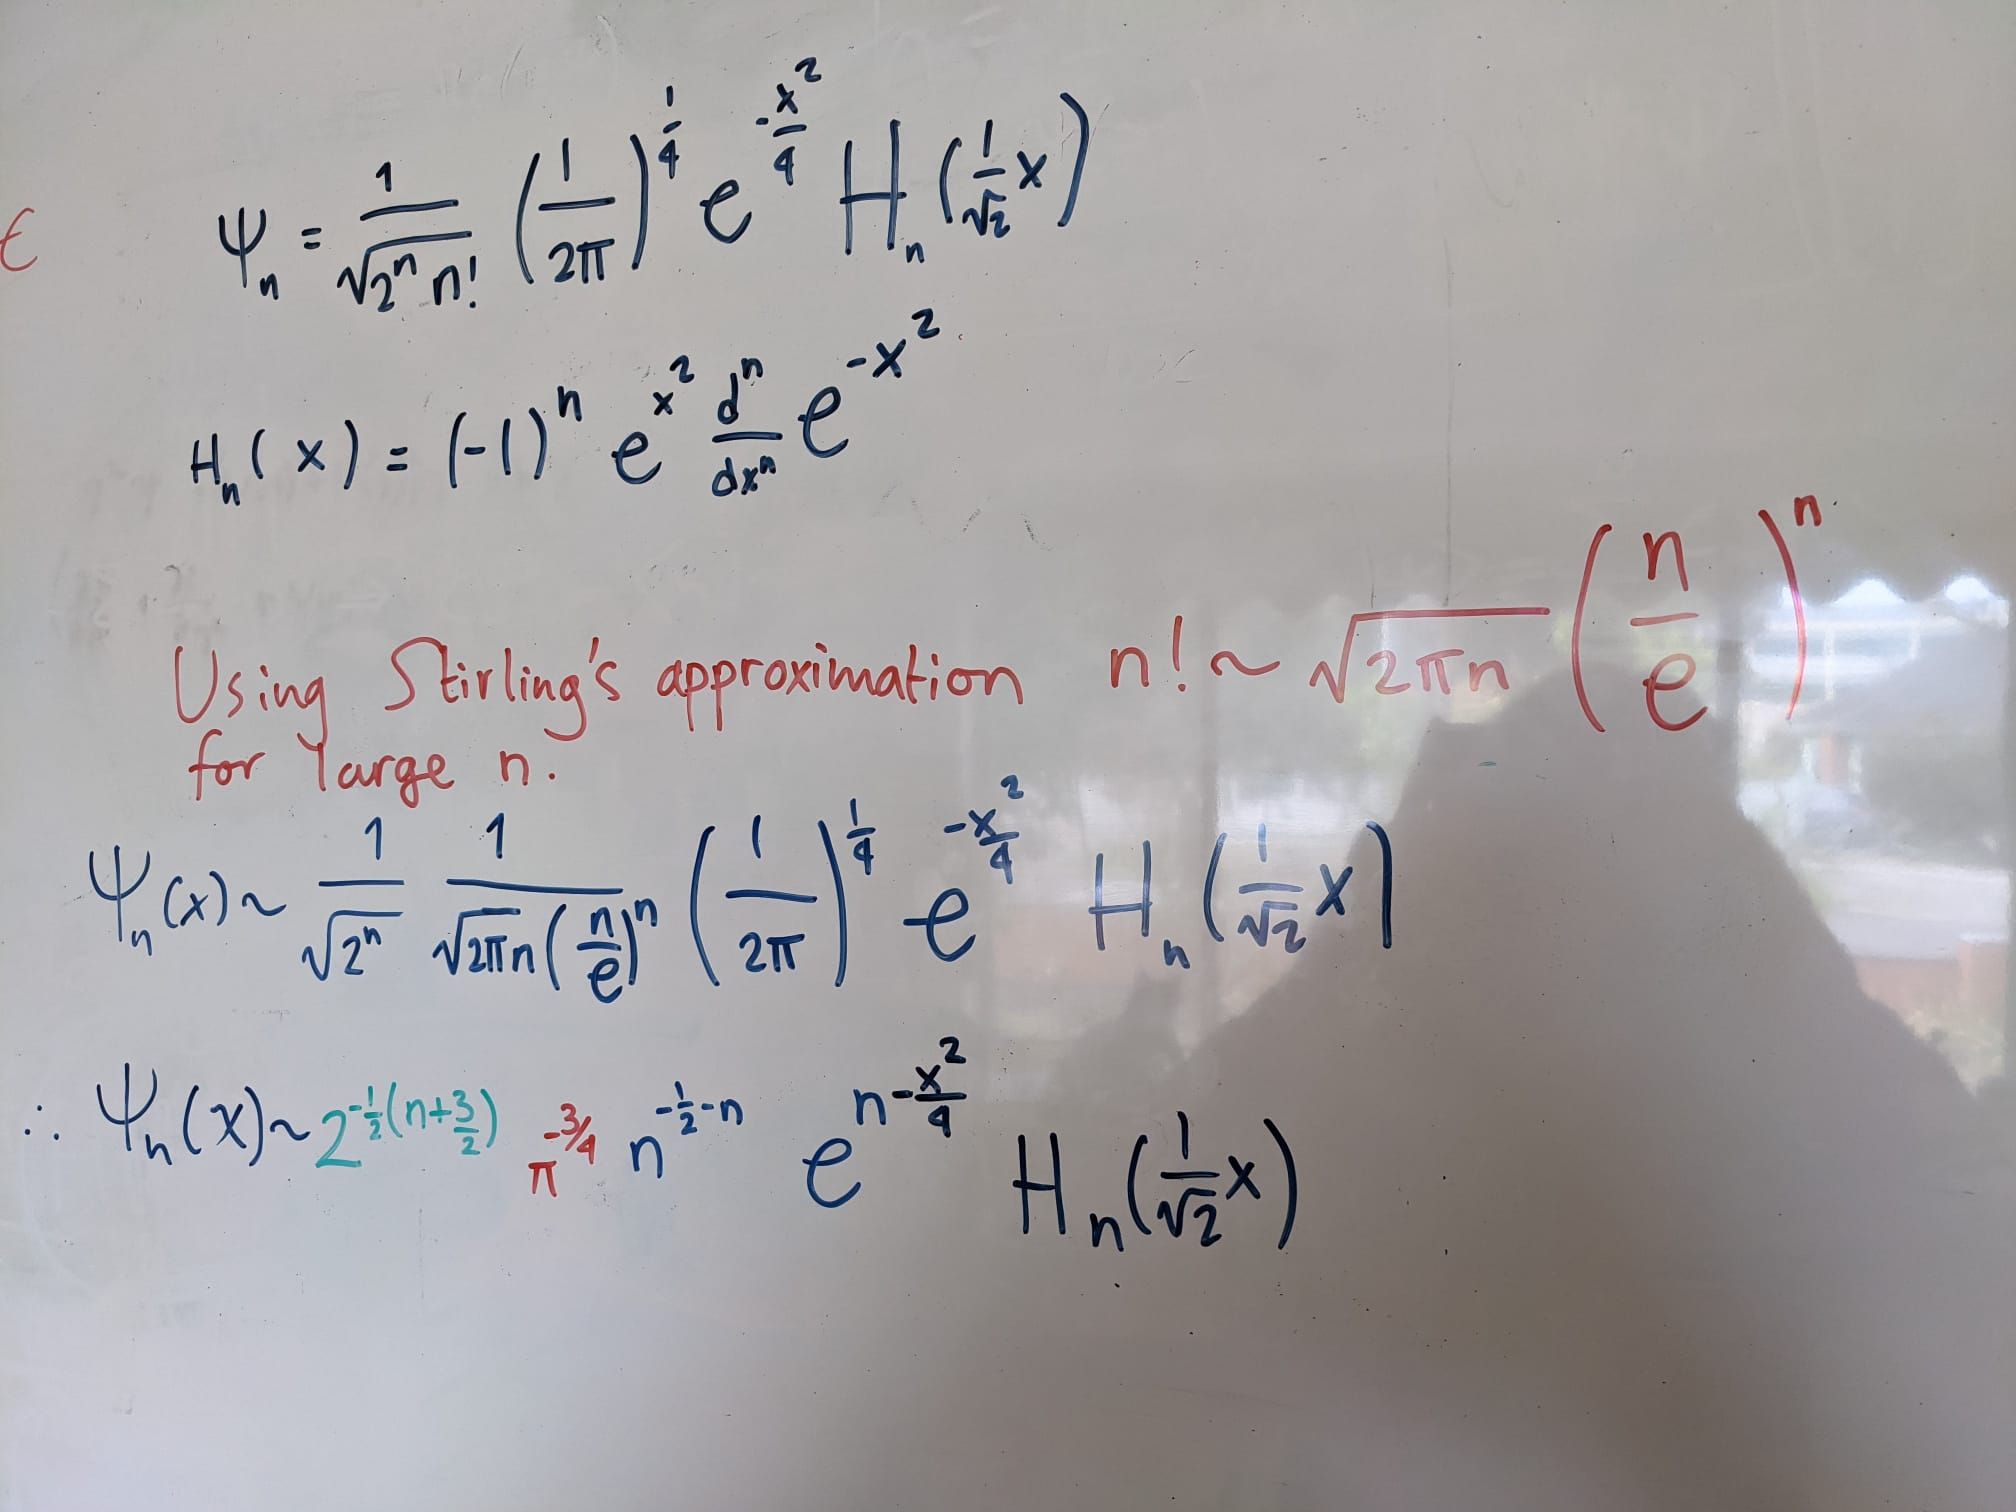 € Ψₙ = 1/√(2ⁿ) n! (1/2π)^(1/4) e^(-x²/4) Hₙ(1/√2 x)
Hₙ(x) = (-1)ⁿ e^(x²) dⁿ/dxⁿ e^(-x²)
Using Stirling's approximation n! ~ √(2πn) (n/e)ⁿ
for large n.
Ψₙ(x) ~ 1/√(2ⁿ) 1/(√(2π)n (n/e)ⁿ) (1/2π)^(1/4) e^(-x²/4) Hₙ(1/√2 x)
∴ Ψₙ(x) ~ 2^(-1/2(n+3/2)) π^(-3/4) n^(-1/2-n) e^(n-x²/4) Hₙ(1/√2 x)